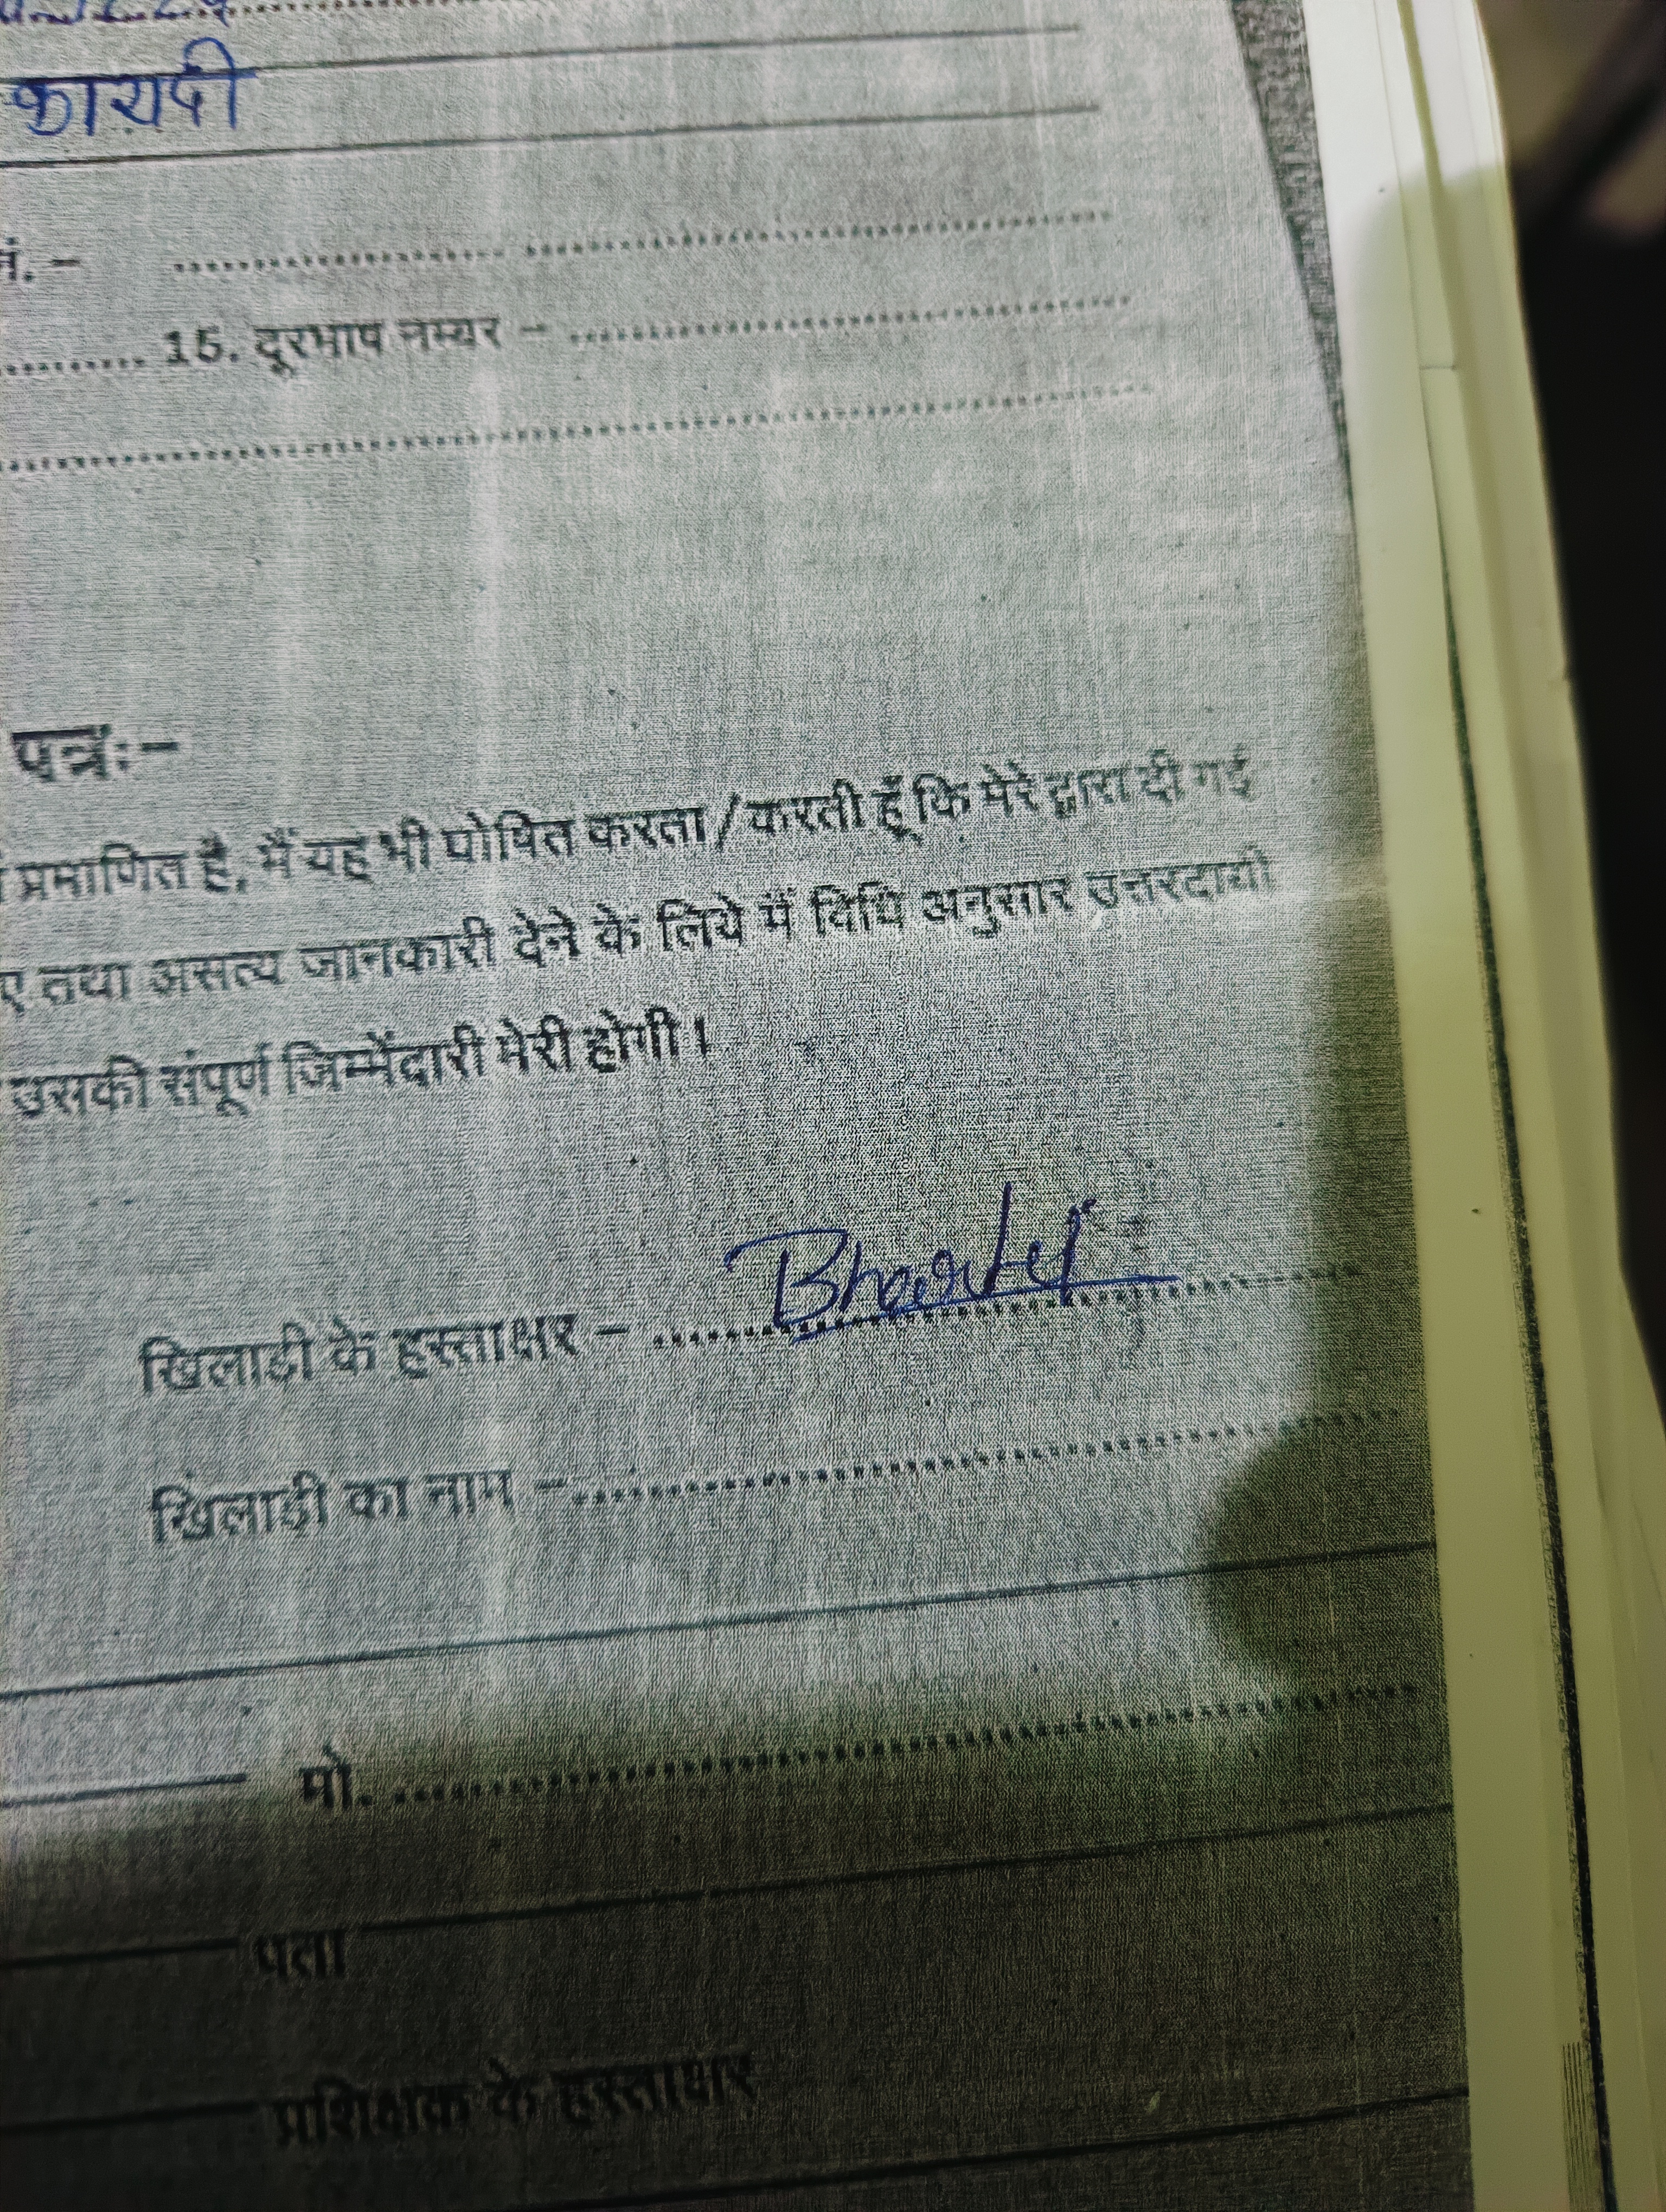 कायदी
नं. –
15. दूरभाष नम्बर –
पत्रः–
प्रमाणित है, मैं यह भी घोषित करता/करती हूँ कि मेरे द्वारा दी गई
ए तथा असत्य जानकारी देने के लिये मैं विधि अनुसार उत्तरदायी
उसकी संपूर्ण जिम्मेंदारी मेरी होगी।
खिलाडी के हस्ताक्षर –
खिलाड़ी का नाम –
मो.
पता
प्रशिक्षक के हस्ताक्षर